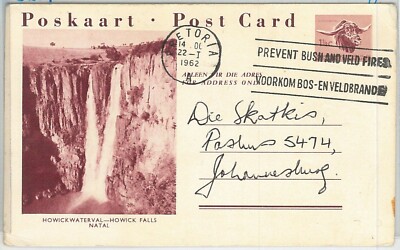 Poskaart · Post Card
PRETORIA
22-I
1962
PREVENT BUSH AND VELD FIRES
VOORKOM BOS-EN VELDBRANDE
ALLEEN VIR DIE ADRES
FOR ADDRESS ONLY
Die Skatkis,
Posbus 5474,
Johannesburg.
HOWICKWATERVAL—HOWICK FALLS
NATAL